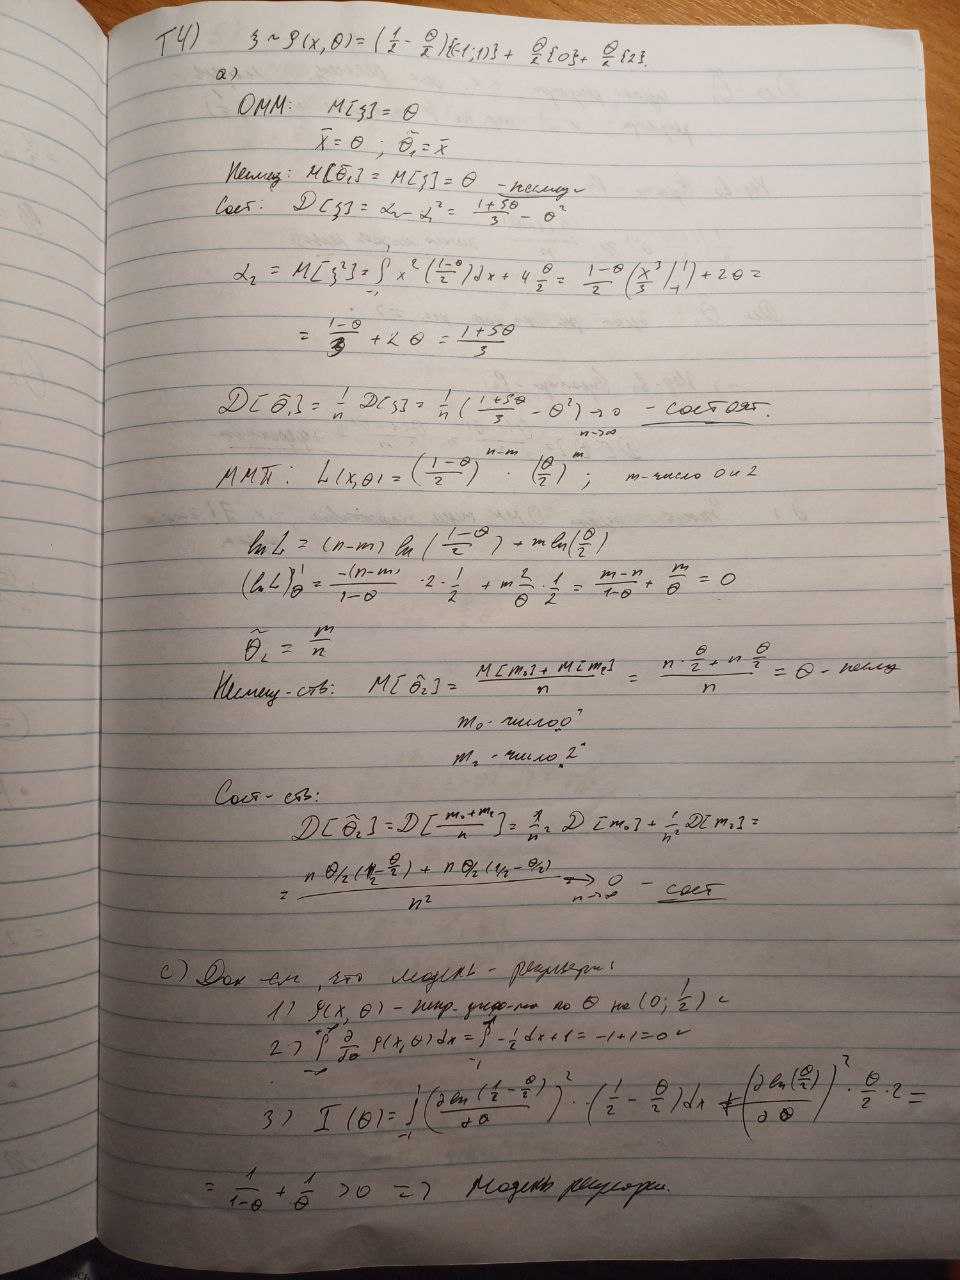 T4) ξ ~ ρ(x, θ) = (1/2 - θ/2){(-1;1)} + θ/2 {0} + θ/2 {2}.
a)
ОММ: M[ξ] = θ
x̄ = θ ; θ̃₁ = x̄
Несмещ: M[θ̃₁] = M[ξ] = θ - несмещ
Сост: D[ξ] = α₂ - α₁² = (1+5θ)/3 - θ²
α₂ = M[ξ²] = ∫₋₁¹ x² ((1-θ)/2) dx + 4 θ/2 = (1-θ)/2 (x³/3 |₋₁¹) + 2θ =
= (1-θ)/3 + 2θ = (1+5θ)/3
D[θ̃₁] = 1/n D[ξ] = 1/n ((1+5θ)/3 - θ²) → 0 n→∞ - состоят.
ММП: L(x,θ) = ((1-θ)/2)ⁿ⁻ᵐ · (θ/2)ᵐ ; m - число 0 и 2
ln L = (n-m) ln((1-θ)/2) + m ln(θ/2)
(ln L)'θ = -(n-m)/(1-θ) · 2 · 1/2 + m 2/θ · 1/2 = (m-n)/(1-θ) + m/θ = 0
θ̃₂ = m/n
Несмещ-ств: M[θ̃₂] = (M[m₀] + M[m₂])/n = (n · θ/2 + n θ/2)/n = θ - несмещ
m₀ - число "0"
m₂ - число "2"
Сост-ств:
D[θ̃₂] = D[(m₀+m₂)/n] = 1/n² D[m₀] + 1/n² D[m₂] =
= (n θ/2 (1/2 - θ/2) + n θ/2 (1/2 - θ/2))/n² → 0 n→∞ - сост
c) Док-ем, что модель - регулярн:
1) ρ(x, θ) - непр. дифф-ма по θ на (0; 1/2) ✓
2) ∫₋∞⁺∞ ∂/∂θ ρ(x,θ) dx = ∫₋₁¹ -1/2 dx + 1 = -1 + 1 = 0 ✓
3) I(θ) = ∫₋₁¹ (∂ln(1/2 - θ/2)/∂θ)² · (1/2 - θ/2) dx + (∂ln(θ/2)/∂θ)² · θ/2 · 2 =
= 1/(1-θ) + 1/θ > 0 => Модель регулярн.